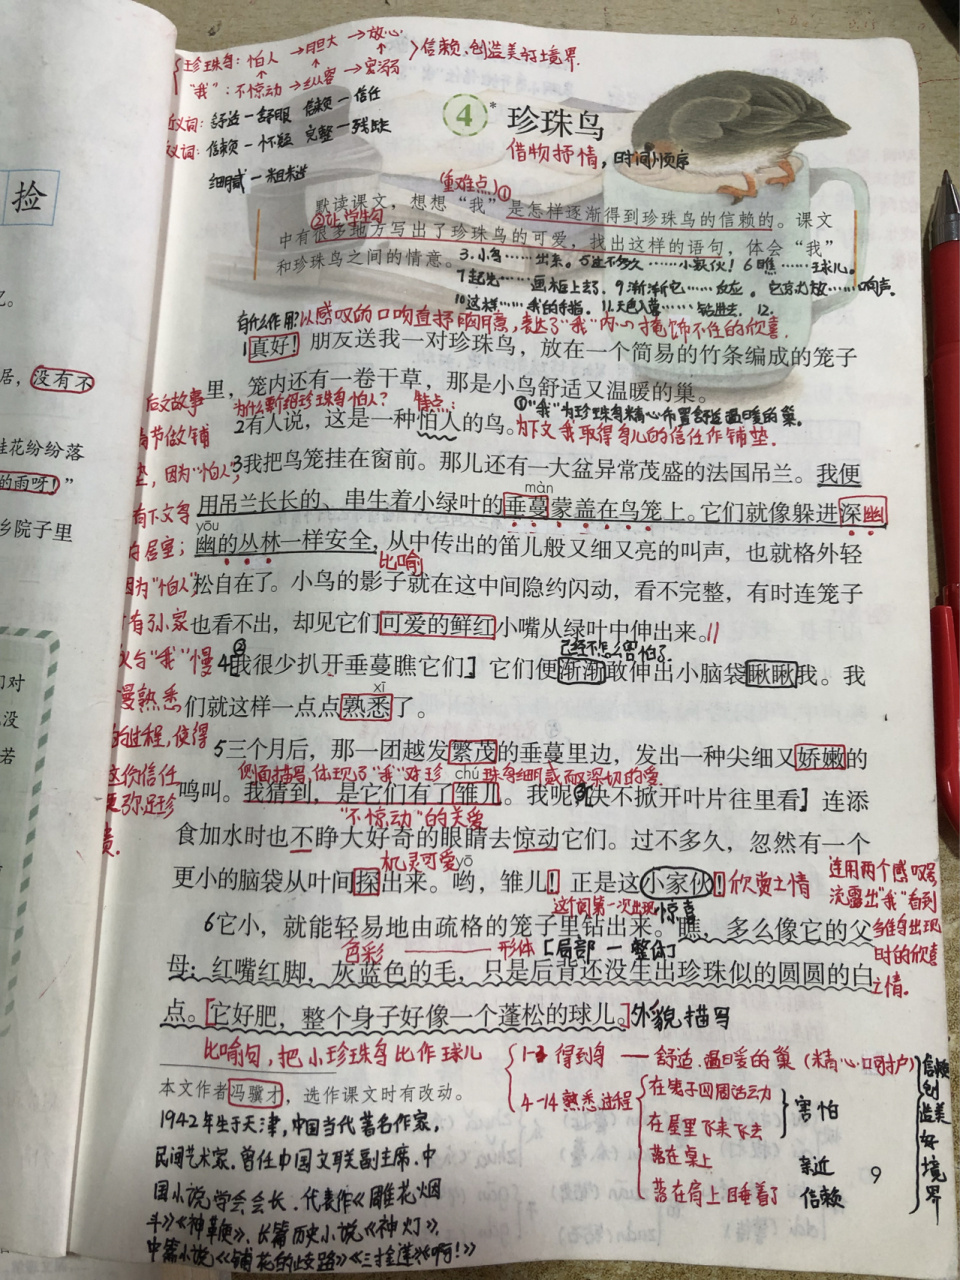 珍珠鸟:怕人→胆大→放心
信赖、创造美好境界.
"我":不惊动→纵容→宠溺
近义词:舒适—舒服 信赖—信任
反义词:信赖—怀疑 完整—残缺
细腻—粗糙
4* 珍珠鸟
借物抒情,时间顺序
(重难点)①
默读课文,想想“我”是怎样逐渐得到珍珠鸟的信赖的。课文
中有很多地方写出了珍珠鸟的可爱,找出这样的语句,体会“我”
和珍珠鸟之间的情意。
3.小鸟……出来。5过不多久……小家伙!6瞧……球儿。
7起先……画框上了.9.渐渐它……反应。它完全放……响声.
10这样……我的手指.11.天色入暮……钻进去.12.
有什么作用?以感叹的口吻直抒胸臆,表达了"我"内心掩饰不住的欣喜.
1真好!朋友送我一对珍珠鸟,放在一个简易的竹条编成的笼子
里,笼内还有一卷干草,那是小鸟舒适又温暖的巢。
①"我"为珍珠鸟精心布置舒适温暖的巢。
2有人说,这是一种怕人的鸟。
为下文我取得鸟儿的信任作铺垫.
3我把鸟笼挂在窗前。那儿还有一大盆异常茂盛的法国吊兰。我便
màn
用吊兰长长的、串生着小绿叶的垂蔓蒙盖在鸟笼上。它们就像躲进深幽
yōu
幽的丛林一样安全,从中传出的笛儿般又细又亮的叫声,也就格外轻
比喻
松自在了。小鸟的影子就在这中间隐约闪动,看不完整,有时连笼子
也看不出,却见它们可爱的鲜红小嘴从绿叶中伸出来。
已经不怎么害怕了
4我很少扒开垂蔓瞧它们,它们便渐渐敢伸出小脑袋瞅瞅我。我
xī
们就这样一点点熟悉了。
5三个月后,那一团越发繁茂的垂蔓里边,发出一种尖细又娇嫩的
侧面描写,体现了"我"对珍珠鸟细腻而又深切的爱.
chú
鸣叫。我猜到,是它们有了雏儿。我呢,决不掀开叶片往里看,连添
"不惊动"的关爱
食加水时也不睁大好奇的眼睛去惊动它们。过不多久,忽然有一个
机灵可爱
yō
更小的脑袋从叶间探出来。哟,雏儿!正是这小家伙!
欣赏之情
连用两个感叹号
流露出"我"看到
雏鸟出现
时的欣喜
之情.
这个词第一次出现 惊喜
6它小,就能轻易地由疏格的笼子里钻出来。瞧,多么像它的父
色彩——形体[局部—整体]
母:红嘴红脚,灰蓝色的毛,只是后背还没生出珍珠似的圆圆的白
点。它好肥,整个身子好像一个蓬松的球儿。
外貌描写
比喻句,把小珍珠鸟比作球儿
1-3 得到鸟——舒适、温暖的巢(精心呵护)
4-14熟悉过程
在笼子四周活动
在屋里飞来飞去
害怕
落在桌上
亲近
落在肩上睡着了
信赖
信赖创造美好境界
本文作者冯骥才,选作课文时有改动。
1942年生于天津,中国当代著名作家,
民间艺术家.曾任中国文联副主席.中
国小说学会会长.代表作《雕花烟
斗》《神鞭》、长篇历史小说《神灯》,
中篇小说《铺花的歧路》《三寸金莲》《啊!》
9
捡
没有不
桂花纷纷落
的雨呀!”
乡院子里